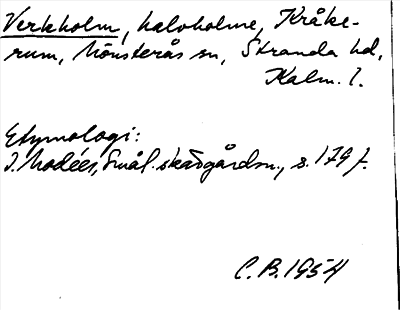 Verkholm, halvholme, Kråke-
rum, Mönsterås sn, Stranda hd,
Kalm. l.
Etymologi:
I. Modéer, Smål. skärgårdsn., s. 179 f.
C.B. 1954